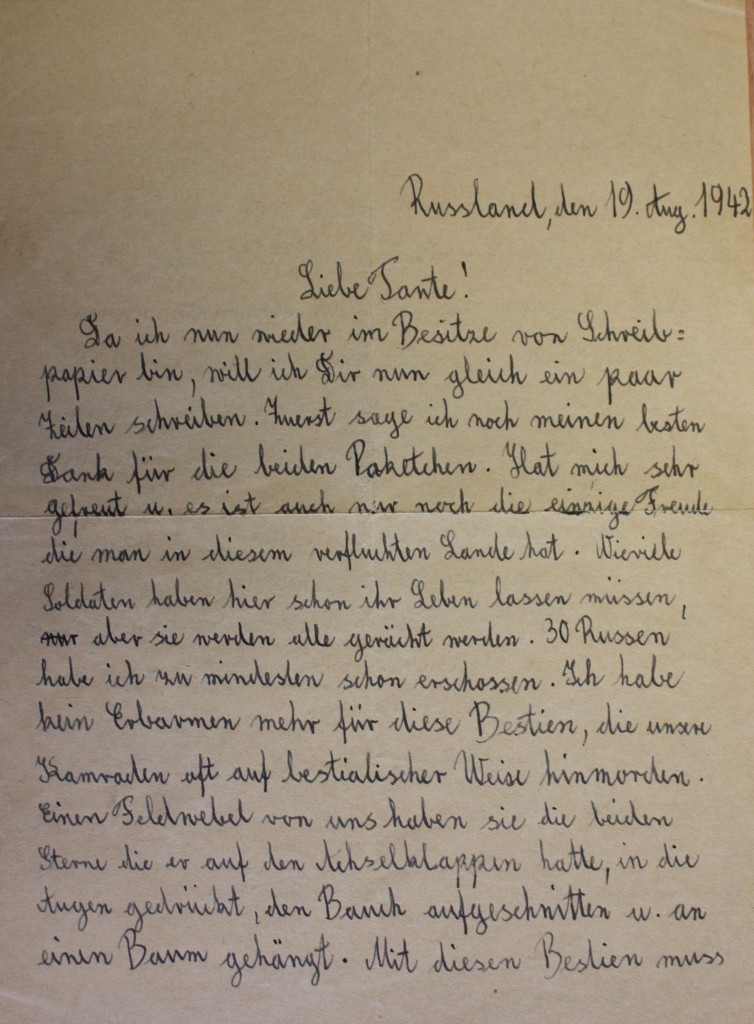 Russland, den 19. Aug. 1942
Liebe Tante!
Da ich nun wieder im Besitze von Schreib=
papier bin, will ich Dir nun gleich ein paar
Zeilen schreiben. Zuerst sage ich noch meinen besten
Dank für die beiden Paketchen. Hat mich sehr
gefreut u. es ist auch nur noch die einzige Freude
die man in diesem verfluchten Lande hat. Wieviele
Soldaten haben hier schon ihr Leben lassen müssen,
nur aber sie werden alle gerächt werden. 30 Russen
habe ich zu mindesten schon erschossen. Ich habe
kein Erbarmen mehr für diese Bestien, die unsere
Kamraden oft auf bestialischer Weise hinmorden.
Einen Feldwebel von uns haben sie die beiden
Sterne die er auf den Achselklappen hatte, in die
Augen gedrückt, den Bauch aufgeschnitten u. an
einen Baum gehängt. Mit diesen Bestien muss